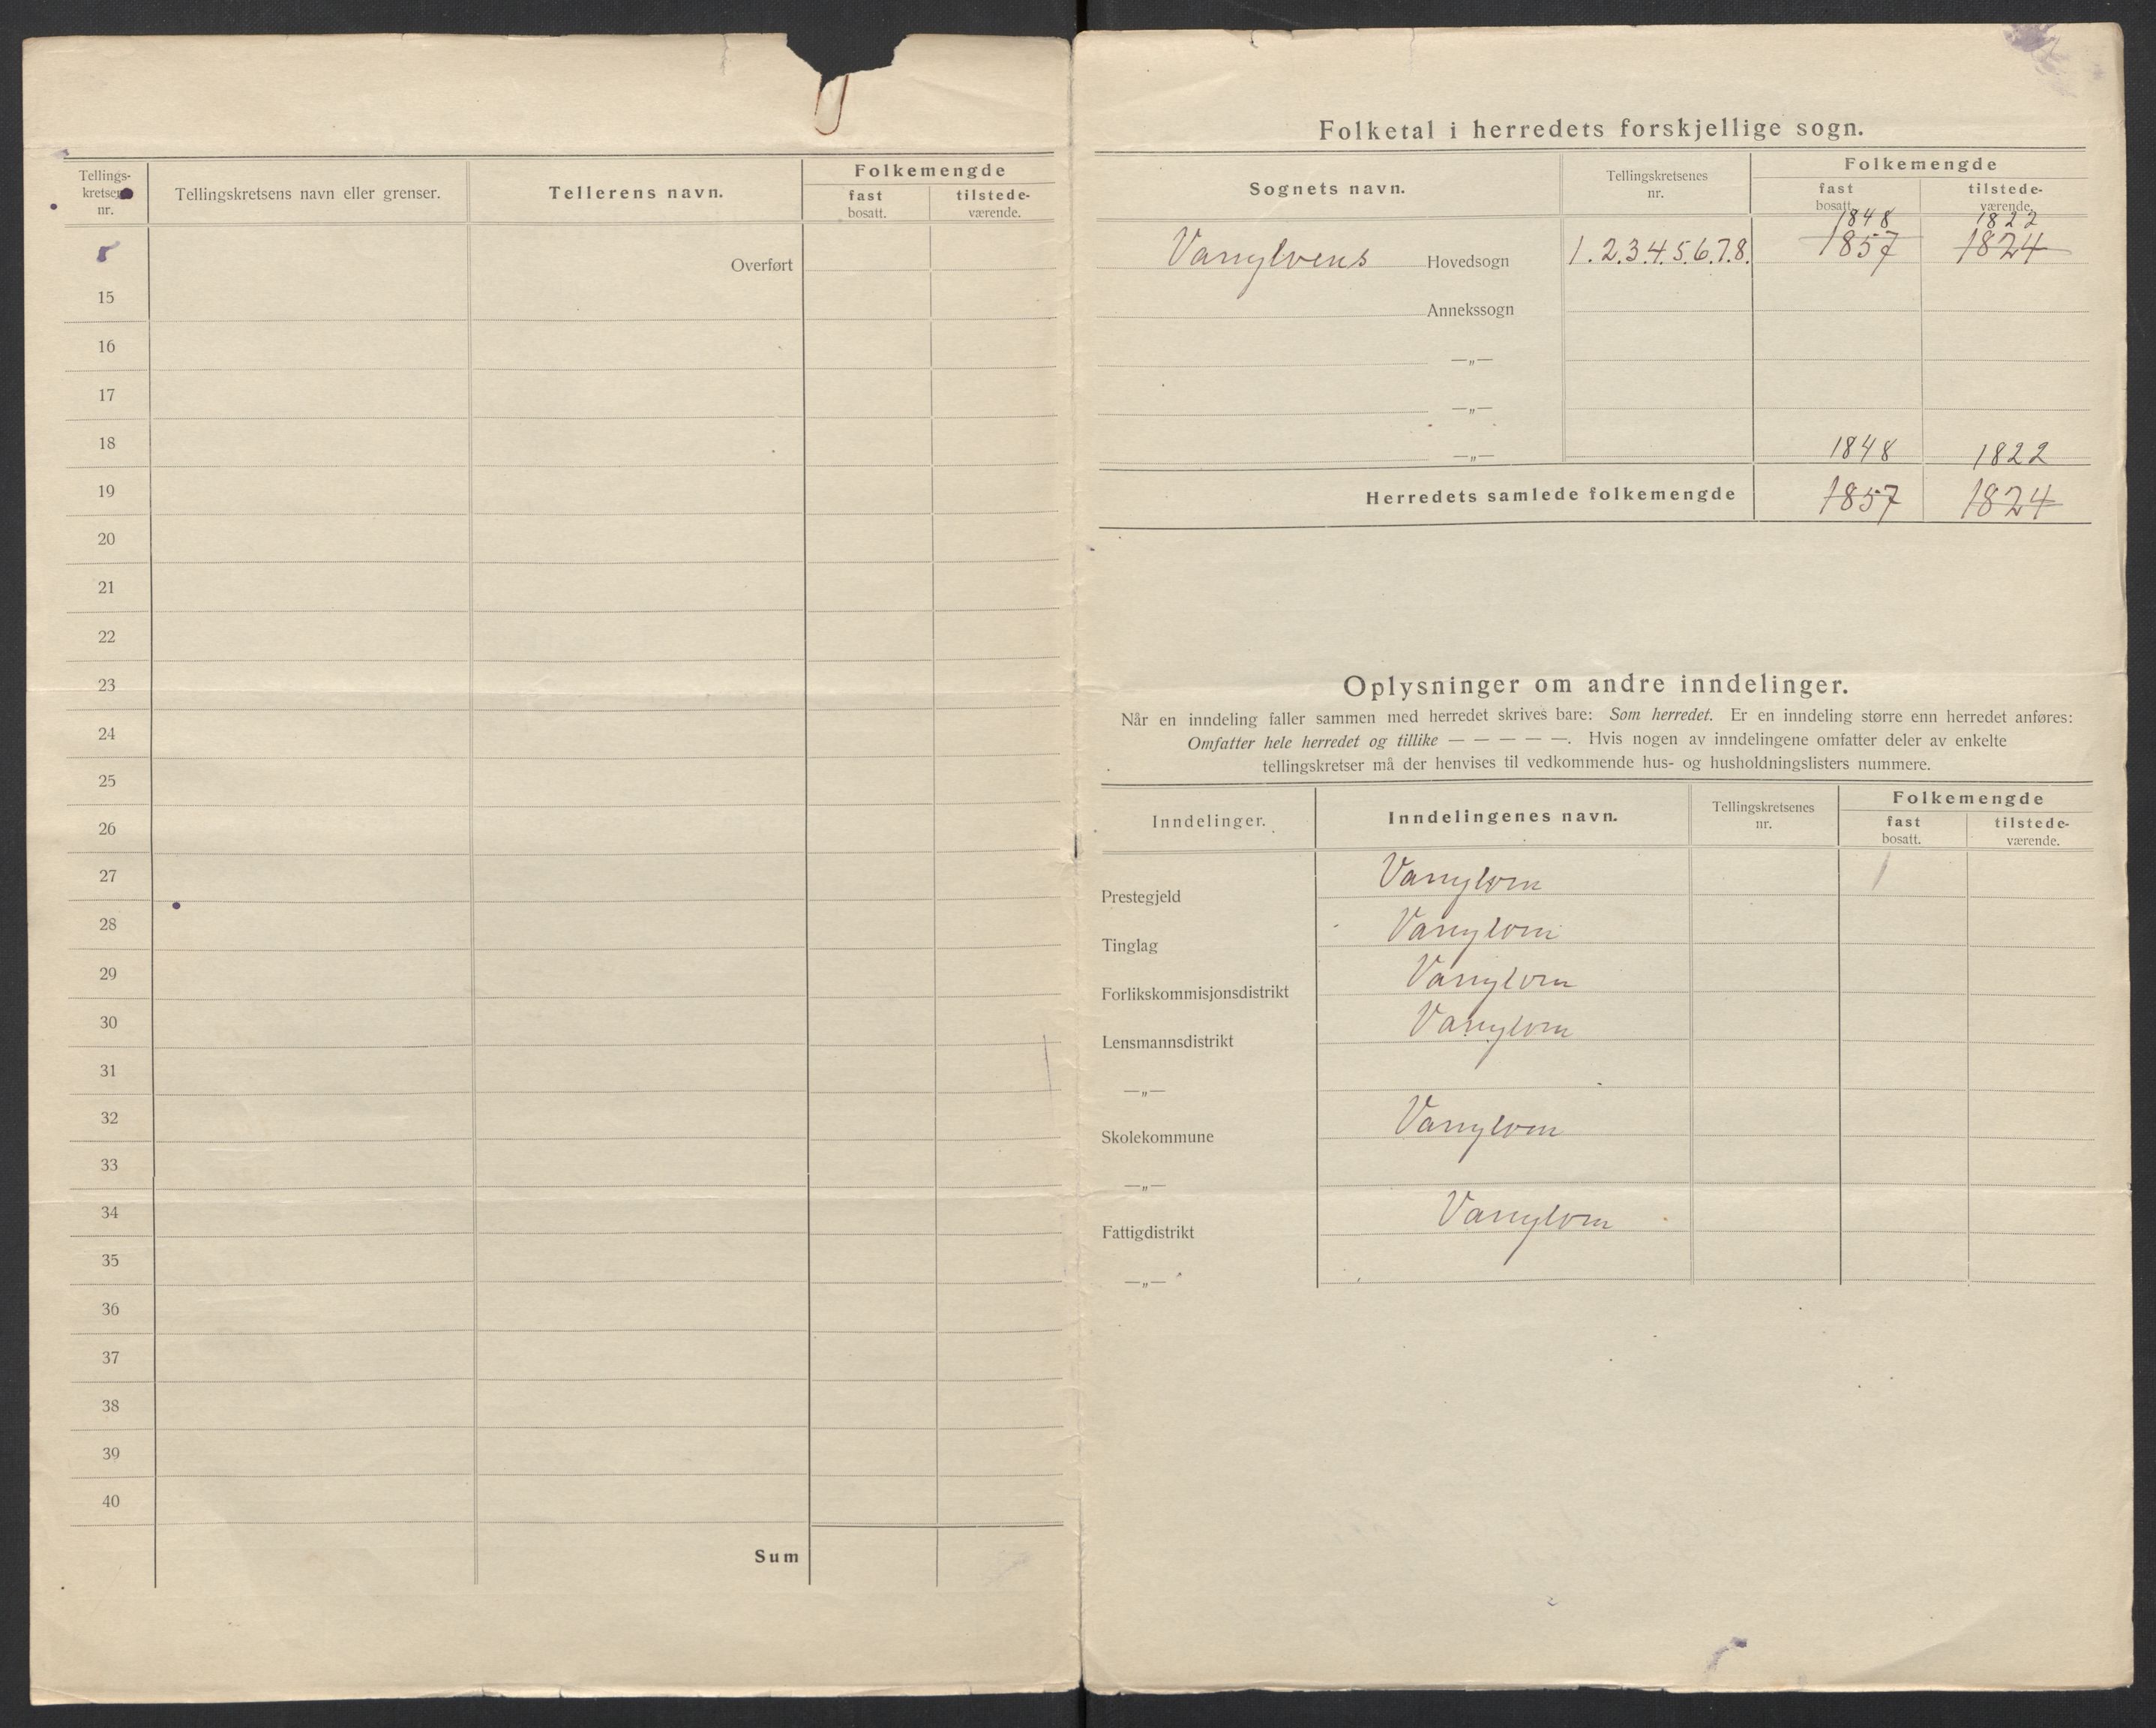 Tellings-
kretsens
nr.
Tellingskretsens navn eller grenser.
Tellerens navn.
Folkemengde
fast
bosatt.
tilstede-
værende.
Overført
15
16
17
18
19
20
21
22
23
24
25
26
27
28
29
30
31
32
33
34
35
36
37
38
39
40
Sum
Folketal i herredets forskjellige sogn.
Sognets navn.
Tellingskretsenes
nr.
Folkemengde
fast
bosatt.
tilstede-
værende.
1848 1822
Vanylvens Hovedsogn 1.2.3.4.5.6.7.8. 1857 1824
Annekssogn
—„—
—„—
—„— 1848 1822
Herredets samlede folkemengde 1857 1824
Oplysninger om andre inndelinger.
Når en inndeling faller sammen med herredet skrives bare: Som herredet. Er en inndeling større enn herredet anføres:
Omfatter hele herredet og tillike — — — — —. Hvis nogen av inndelingene omfatter deler av enkelte
tellingskretser må der henvises til vedkommende hus- og husholdningslisters nummere.
Inndelinger.
Inndelingenes navn.
Tellingskretsenes
nr.
Folkemengde
fast
bosatt.
tilstede-
værende.
Prestegjeld Vanylven
Tinglag Vanylven
Forlikskommisjonsdistrikt Vanylven
Lensmannsdistrikt Vanylven
—„—
Skolekommune Vanylven
—„—
Fattigdistrikt Vanylven
—„—